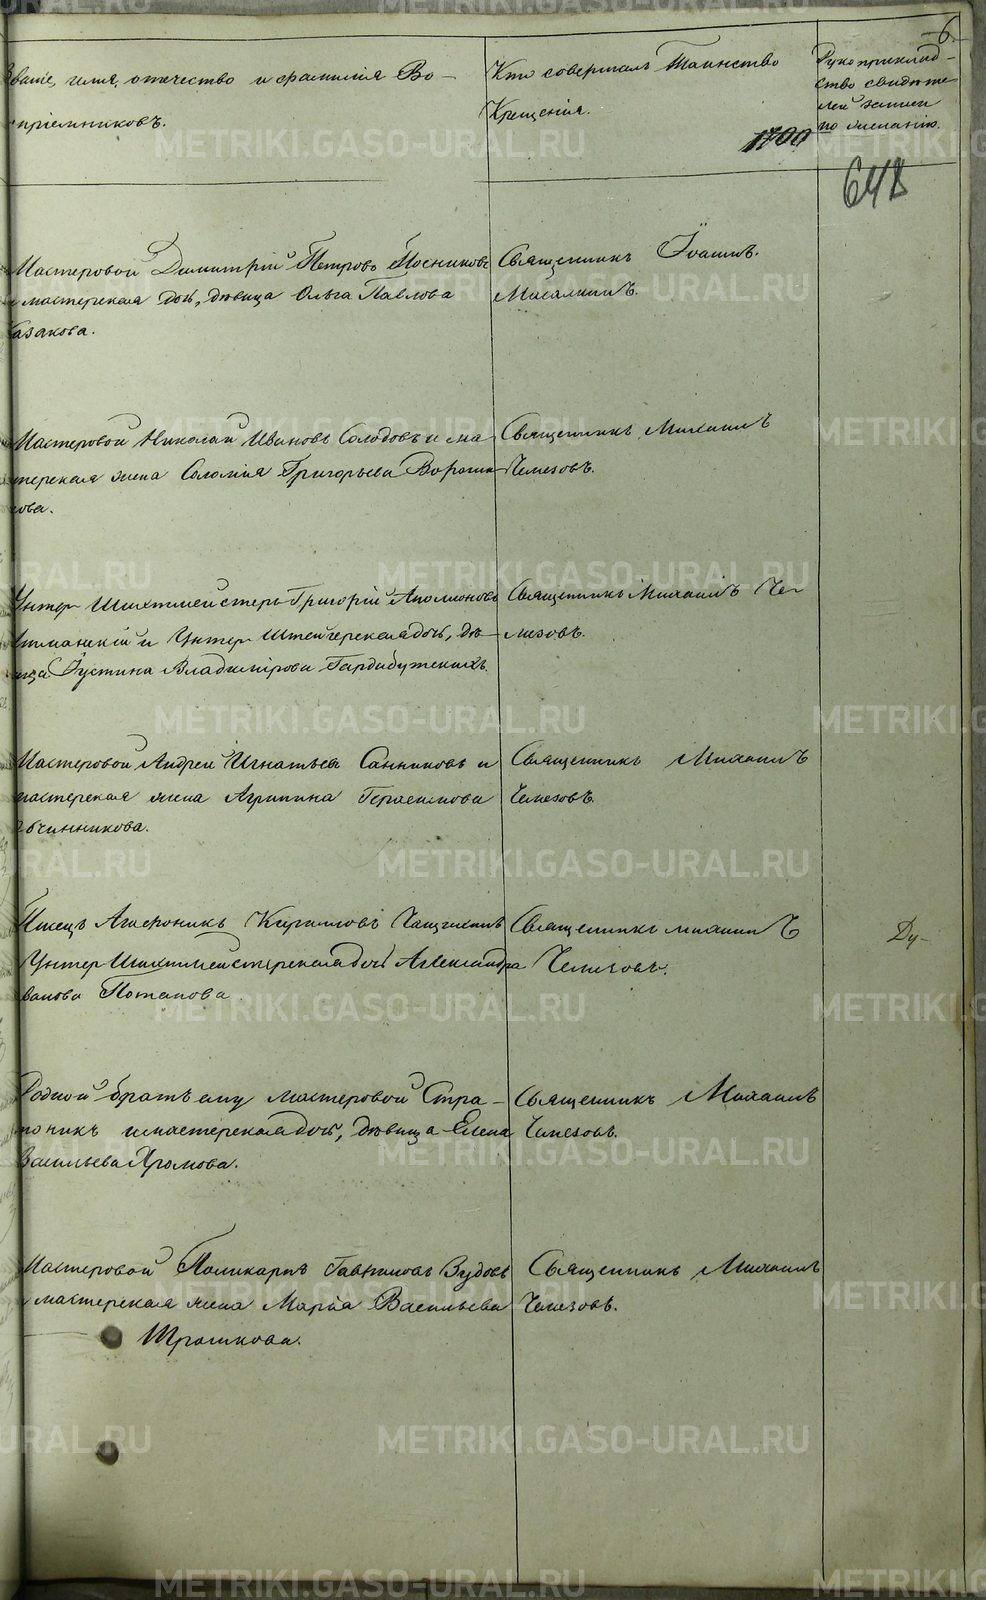 6.
Званіе, имя, отечество и фамилія Во-
спріемниковъ.
Кто совершалъ Таинство
Крещенія.
Рукоприклад-
ство свидѣте
лей записи
по желанію.
1700
648
Мастеровой Димитрій Петровъ Посниковъ
и мастерская дочь, дѣвица Ольга Павлова
Казакова.
Священникъ Іоаннъ
Масялкинъ.
Мастеровой Николай Ивановъ Солодовъ и ма
терская жена Соломія Григорьева Ворони
кова.
Священникъ Михаилъ
Чемезовъ.
Унтеръ Шихтмейстеръ Григорій Аполлоновъ
и Унтеръ Штейгерская дочь, дѣ-
вица Іустина Владимірова
Священникъ Михаилъ Че-
мезовъ.
Мастеровой Андрей Игнатьевъ Санниковъ и
мастерская жена Агрипина Герасимова
Овчинникова.
Священникъ Михаилъ
Чемезовъ.
Писецъ Агафоникъ Кириловъ
Унтеръ Шихтмейстерская дочь Александра
Иванова Потапова
Священникъ Михаилъ
Чемезовъ.
Ду-
Родной братъ ему мастеровой Стра-
тоникъ и мастерская дочь, дѣвица Елена
Васильева Хромова.
Священникъ Михаилъ
Чемезовъ.
Мастеровой Поликарпъ Гавриловъ Зудовъ
и мастерская жена Марья Васильева
Трошкова.
Священникъ Михаилъ
Чемезовъ.
METRIKI.GASO-URAL.RU